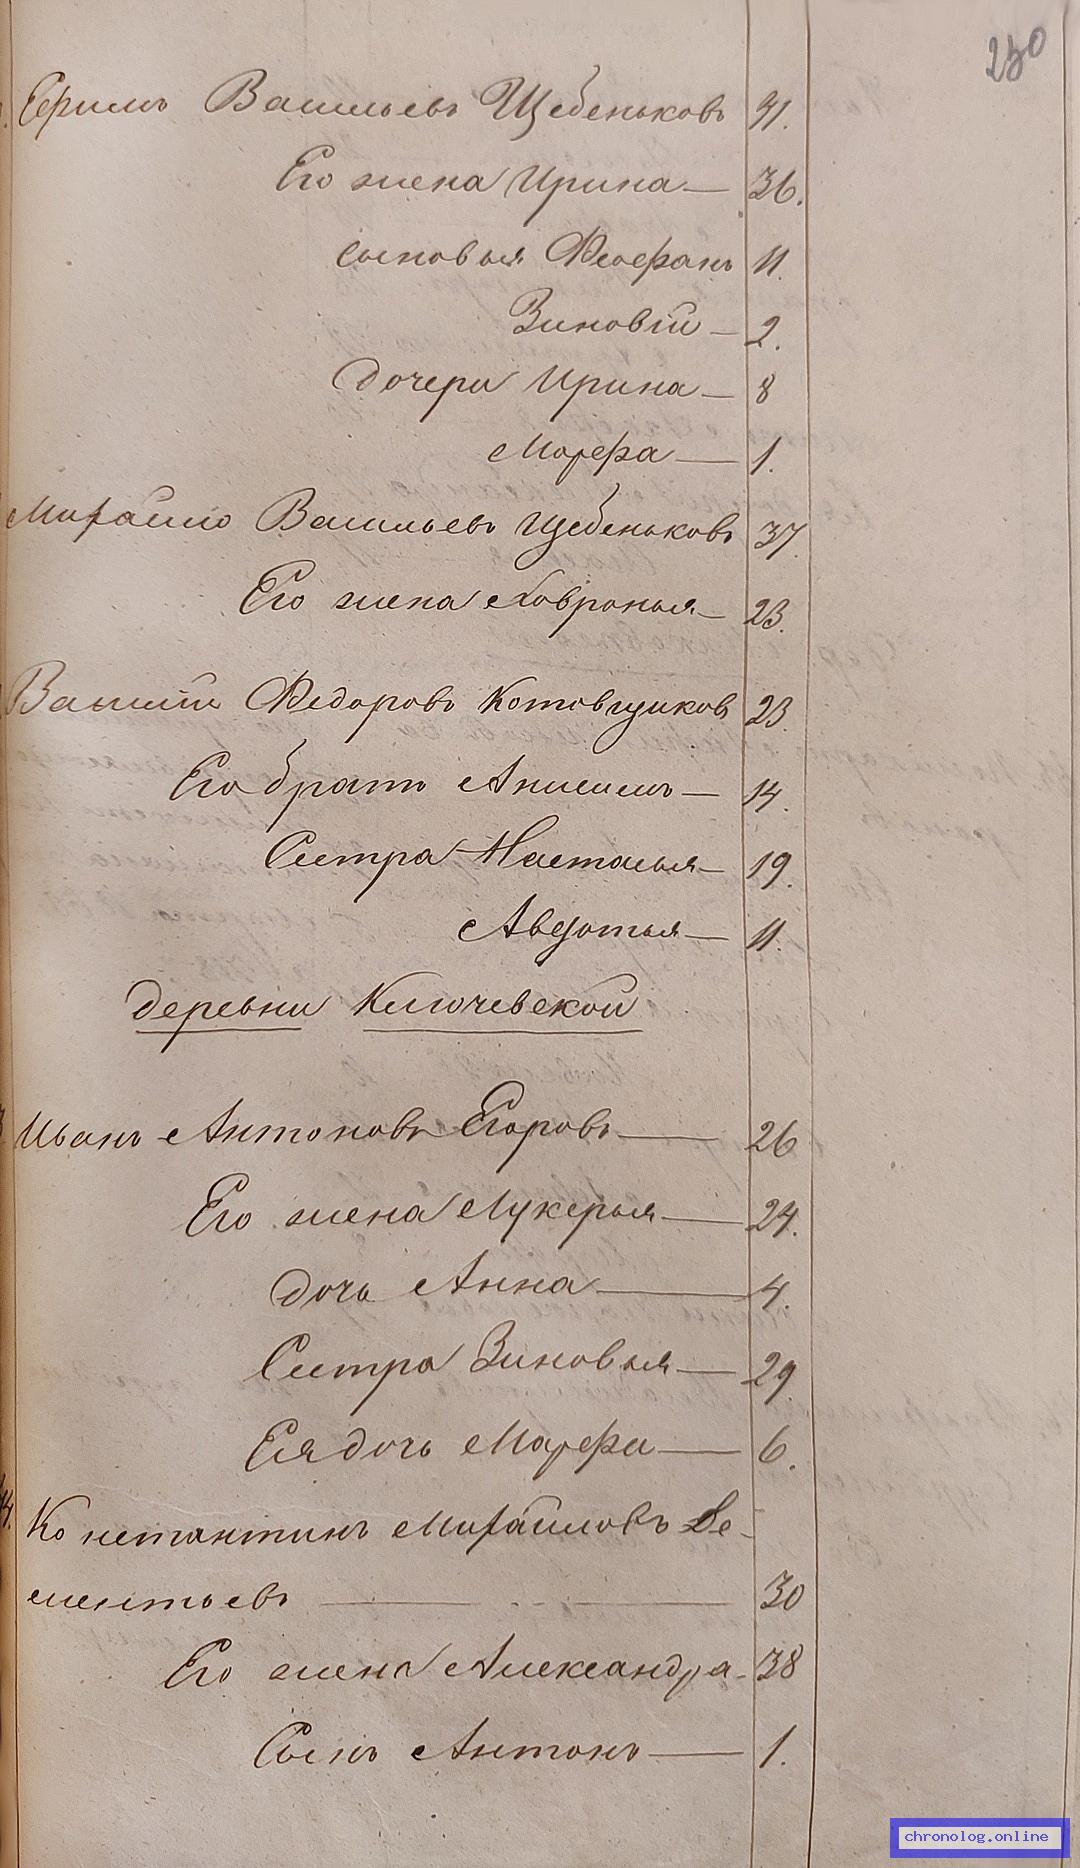 230
Ефимъ Васильевъ Щебеньковъ 41.
Его жена Ирина — 36.
сыновья Феофанъ 11.
Зиновій — 2.
дочери Ирина — 8
Марфа — 1.
Михайло Васильевъ Щебеньковъ 37.
Его жена Ховронья — 23.
Василій Федоровъ Котовщиковъ 23.
Его братъ Анисимъ — 14.
Сестра Настасья — 19.
Авдотья — 11.
деревни Ключевской
Иванъ Антоновъ Егоровъ — 26
Его жена Лукерья — 24.
дочь Анна — 4.
Сестра Зиновья — 29.
Ея дочь Марфа — 6.
Константинъ Михайловъ Де-
ментьевъ — 30
Его жена Александра - 38
Сынъ Антонъ — 1.
chronolog.online